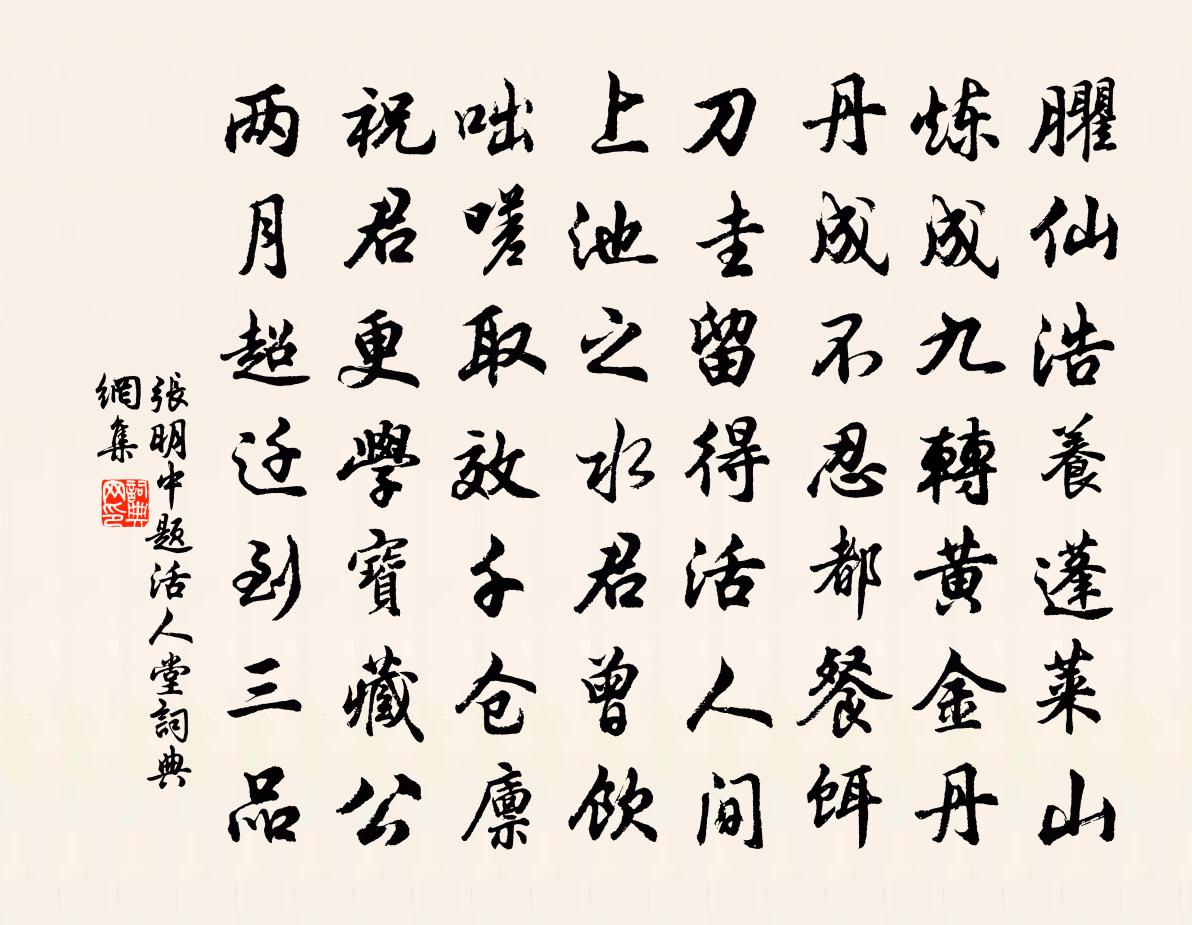 臞仙浩養蓬莱山
炼成九轉黄金丹
丹成不忍都餐饵
刀圭留得活人间
上池之水君曾饮
咄嗟取效千仓廪
祝君更學寶藏公
两月超迁到三品
張明中题活人堂詞典
網集
詞典網印